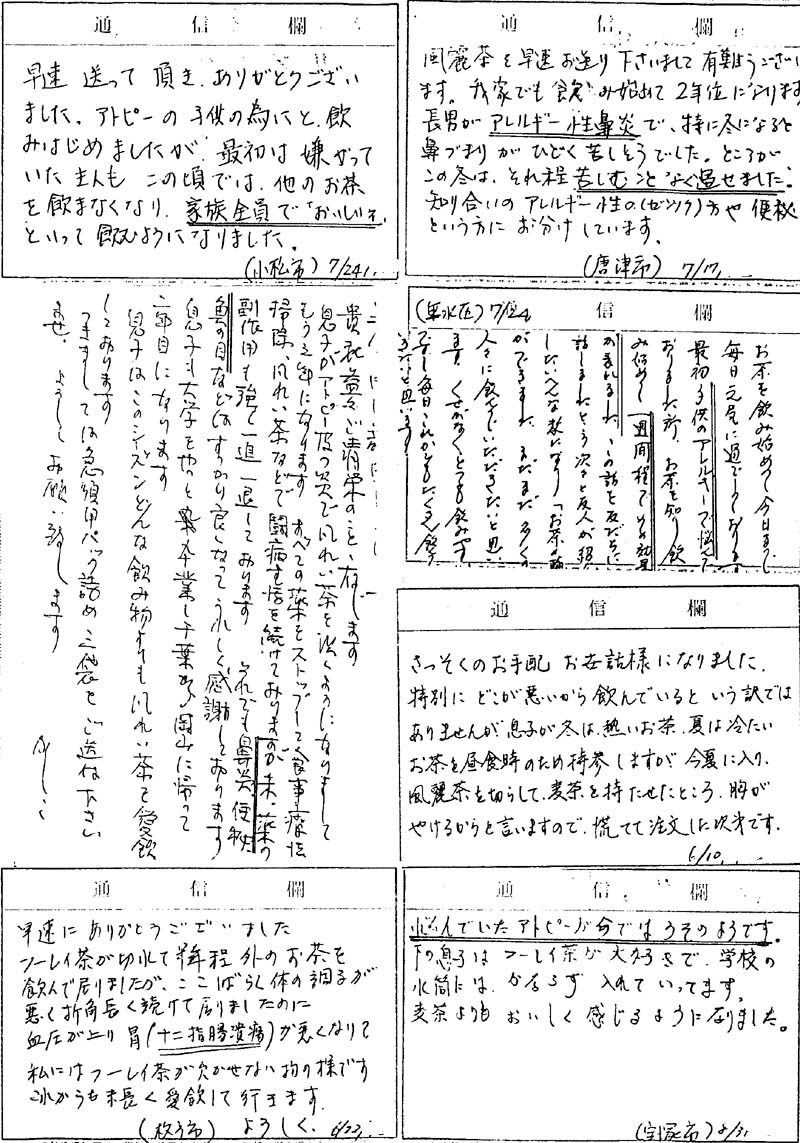 通信欄
早速 送って 頂き、ありがとうござい
ました。アトピーの子供の為にと、飲
みはじめましたが 最初は 嫌がって
いた主人も この頃では、他のお茶
を飲まなくなり、家族全員で「おいしいネ」
といって 飲むようになりました。
(小松市) 7/24
通信欄
風麗茶を早速お送り下さいまして有難うござい
ます。我家でも飲み始めて2年位になります
長男がアレルギー性鼻炎で、特に冬になると
鼻づまりがひどく苦しそうでした。ところが
この冬は、それ程苦しむことなく過せました。
知り合いのアレルギー性の(ゼンソク)方や便秘
という方にお分けしています。
(唐津市) 7/17
信欄
7/24
お茶を飲み始めて今日まで
毎日元気に過ごしております
最初子供のアレルギーで悩んで
おりました所、お茶を知り飲
み始めて一週間程で効果
が表れました。この話を友だちに
話しましたら次々と友人が
「お茶の
ができました。まだまだ多くの
人々に飲んでいただきたいと思い
ます。くせがなくとても飲みやす
です 毎日これからもたくさん飲
みたいと思います
貴社益々ご清栄のことと存じます
息子がアトピー皮フ炎で風れい茶を洗うようになりまして
もう三年になります すべての薬をストップして食事療法
掃除、風れい茶などで闘病生活を続けておりますが未だ薬の
副作用も強く一進一退しております それでも鼻炎、便秘
魚の目などはすっかり良くなってうれしく感謝しております
息子も大学をやっと卒業し千葉から岡山に帰って
二年目になります
息子はこのシーズンどんな飲み物よりも風れい茶を愛飲
しております
つきましては急須用パック詰め三袋をご送ね下さい
ませ。よろしくお願い致します
かしこ
通信欄
さっそくのお手配 お世話様になりました。
特別に どこが悪いから 飲んでいると いう訳では
ありませんが息子が冬は、熱いお茶、夏は冷たい
お茶を昼食時のため持参しますが 今夏に入り、
風麗茶を切らして、麦茶を持たせたところ、胸が
やけるからと言いますので、慌てて注文した次第です。
6/10
通信欄
早速に ありがとうございました
フーレイ茶が切れて半年程 外のお茶を
飲んで居りましたが、ここしばらく体の調子が
悪く折角長く続けて居りましたのに
血圧が上り 胃(十二指腸潰瘍)が悪くなりて
私にはフーレイ茶が欠かせない物の様です
これからも末長く愛飲して行きます。
(枚方市) よろしく、6/23
通信欄
悩んでいたアトピーが今ではうそのようです。
下の息子はフーレイ茶が大好きで、学校の
水筒には、かならず 入れていってます。
麦茶よりも おいしく 感じるようになりました。
(宝塚市) 8/31